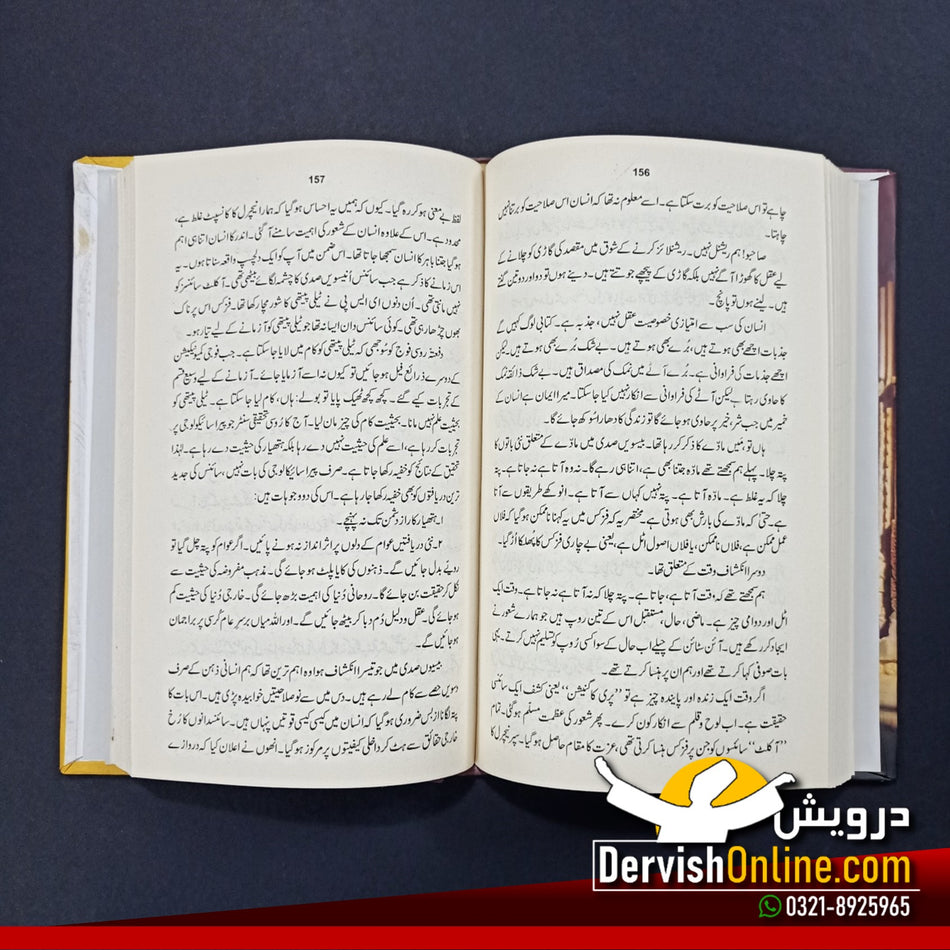 156
چاہے تو اس صلاحیت کو برت سکتا ہے۔ اسے معلوم نہ تھا کہ انسان اس صلاحیت کو برتنا نہیں
چاہتا۔
صاحبو! ہم ریشنل نہیں۔ ریشنلائز کرنے کے شوق میں مقصد کی گاڑی کو چلانے کے
لیے عقل کا گھوڑا آگے نہیں بلکہ گاڑی کے پیچھے جوتتے ہیں۔ دینے ہوں تو دو اور دو تین گنتے
ہیں۔ لینے ہوں تو پانچ۔
انسان کی سب سے امتیازی خصوصیت عقل نہیں، جذبہ ہے۔ کتابی لوگ کہیں گے
جذبات اچھے بھی ہوتے ہیں، بُرے بھی ہوتے ہیں۔ بے شک بُرے بھی ہوتے ہیں۔ لیکن
اچھے جذبات کی فراوانی ہے۔ بُرے آٹے میں نمک کی مصداق ہیں۔ بے شک ذائقہ نمک
کا حاوی رہتا ہے لیکن آٹے کی فراوانی سے انکار نہیں کیا جا سکتا۔ میرا ایمان ہے انسان کے
خمیر میں جب شر، خیر پر حاوی ہو جائے گا تو زندگی کا دھارا سُوکھ جائے گا۔
ہاں تو، مَیں مادّے کا ذکر کر رہا تھا۔ بیسویں صدی میں مادّے کے متعلق نئی باتوں کا
پتہ چلا۔ پہلے ہم سمجھتے تھے مادّہ جتنا بھی ہے، اتنا ہی رہے گا۔ نہ وہ آتا ہے نہ جاتا ہے۔ پتہ
چلا کہ یہ غلط ہے۔ مادّہ آتا ہے۔ پتہ نہیں کہاں سے آتا ہے۔ انوکھے طریقوں سے آتا
ہے۔ حتیٰ کہ مادّے کی بارش بھی ہوتی ہے۔ مختصر یہ کہ فزکس میں یہ کہنا ناممکن ہو گیا کہ فلاں
عمل ممکن ہے، فلاں ناممکن، یا فلاں اصول اٹل ہے، یعنی بے چاری فزکس کا پھلکا اُڑ گیا۔
دوسرا انکشاف وقت کے متعلق تھا۔
ہم سمجھتے تھے کہ وقت آتا ہے، جاتا ہے۔ پتہ چلا کہ نہ آتا ہے نہ جاتا ہے۔ وقت ایک
اٹل اور دوامی چیز ہے۔ ماضی، حال، مستقبل اس کے تین روپ ہیں جو ہمارے شعور نے
ایجاد کر رکھے ہیں۔ آئن سٹائن کے چیلے اب حال کے سوا کسی روپ کو تسلیم نہیں کرتے۔ یہی
بات صوفی کہا کرتے تھے اور ہم ان پر ہنسا کرتے تھے۔
اگر وقت ایک زندہ اور پایندہ چیز ہے تو ”پری کاگنیشن“ یعنی کشف ایک سائنسی
حقیقت ہے۔ اب لوح و قلم سے انکار کون کرے۔ پھر شعور کی عظمت مسلّم ہو گئی۔ تمام
”آکلٹ“ سائنسوں کو جن پر فزکس ہنسا کرتی تھی، عزت کا مقام حاصل ہو گیا۔ سپر نیچرل کا
157
لفظ بے معنی ہو کر رہ گیا۔ کیوں کہ ہمیں یہ احساس ہو گیا کہ ہمارا نیچرل کا کانسپٹ غلط ہے،
محدود ہے۔ اس کے علاوہ انسان کے شعور کی اہمیت سامنے آ گئی۔ اندر کا انسان اتنا ہی اہم
ہو گیا جتنا باہر کا انسان سمجھا جاتا تھا۔ اس ضمن میں آپ کو ایک دلچسپ واقعہ سناتا ہوں۔ یہ
اس زمانے کا ذکر ہے جب سائنس اُنیسویں صدی کا چشمہ لگائے بیٹھی تھی۔ آکلٹ سائنسز کو
نہیں مانتی تھی۔ اُن دنوں ای ایس پی نے ٹیلی پیتھی کا شور مچا رکھا تھا۔ فزکس اس پر ناک
بھوں چڑھا رہی تھی۔ کوئی سائنس دان ایسا نہ تھا جو ٹیلی پیتھی کو آزمانے کے لیے تیار ہو۔
دفعتہً روسی فوج کو سُوجھی کہ ٹیلی پیتھی کو کام میں لایا جا سکتا ہے۔ جب فوجی کمیونیکیشن
کے دوسرے ذرائع فیل ہو جائیں تو کیوں نہ اسے آزمایا جائے۔ آزمانے کے لیے وسیع قسم
کے تجربات کیے گئے۔ کچھ کچھ ٹھیک پایا تو بولے: ہاں، کام لیا جا سکتا ہے۔ ٹیلی پیتھی کو
بحیثیت علم نہیں مانا۔ بحیثیت کام کی چیز مان لیا۔ آج کا رُوسی تحقیقی سنٹر جو پیراسائیکولوجی پر
تجربات کر رہا ہے، اسے علم کی حیثیت نہیں دے رہا بلکہ ہتھیار کی حیثیت دے رہا ہے۔ لہٰذا
تحقیق کے نتائج کو خفیہ رکھا جاتا ہے۔ صرف پیراسائیکالوجی کی بات نہیں، سائنس کی جدید
ترین دریافتوں کو بھی خفیہ رکھا جا رہا ہے۔ اس کی دو وجوہات ہیں:
۱۔ ہتھیار کا راز دشمن تک نہ پہنچے۔
۲۔ نئی دریافتیں عوام کے دلوں پر اثر انداز نہ ہونے پائیں۔ اگر عوام کو پتہ چل گیا تو
رویّے بدل جائیں گے۔ ذہنوں کی کایا پلٹ ہو جائے گی۔ مذہب مفروضہ کی حیثیت سے
نکل کر حقیقت بن جائے گا۔ روحانی دُنیا کی اہمیت بڑھ جائے گی۔ خارجی دُنیا کی حیثیت کم
ہو جائے گی۔ عقل و دلیل دُم دبا کر بیٹھ جائیں گے۔ اور اللہ میاں بر سرِ عام کُرسی پر براجمان
ہو جائیں گے۔
بیسویں صدی میں جو تیسرا انکشاف ہوا وہ اہم ترین تھا کہ ہم انسانی ذہن کے صرف
دسویں حصے سے کام لے رہے ہیں۔ دس میں سے نو صلاحیتیں خوابیدہ پڑی ہیں۔ اس بات کا
پتہ لگانا ازبس ضروری ہو گیا کہ انسان میں کیسی کیسی قوتیں پنہاں ہیں۔ سائنسدانوں کا رُخ
خارجی حقائق سے ہٹ کر داخلی کیفیتوں پر مرکوز ہو گیا۔ انھوں نے اعلان کیا کہ دروازے
درویش
DervishOnline.com
0321-8925965